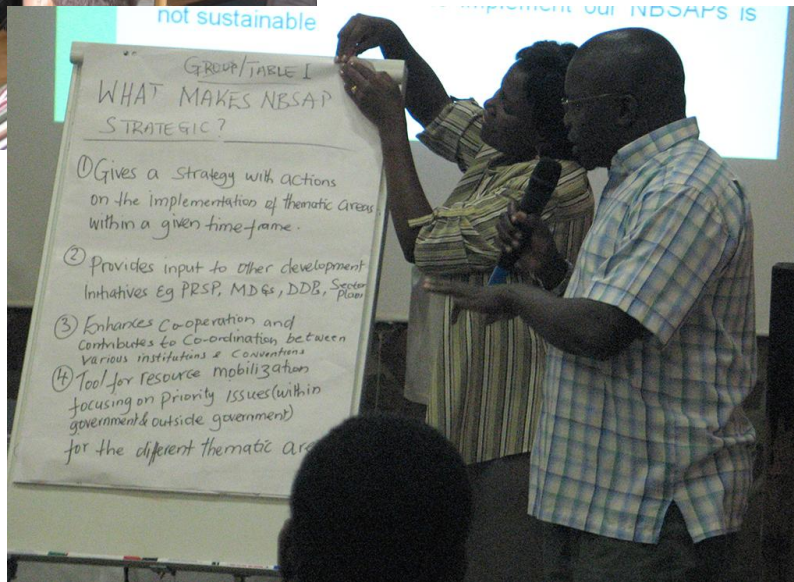 implement our NBSAPs is
not sustainable
GROUP/TABLE I
WHAT MAKES NBSAP
STRATEGIC?
① Gives a strategy with actions
on the implementation of thematic areas
within a given time-frame.
② Provides input to other development
Initiatives Eg PRSP, MDGs, DDP, Sector
Plan
③ Enhances Co-operation and
contributes to Co-ordination between
various institutions & Conventions
④ Tool for resource mobilization
focusing on priority Issues (within
government & outside government)
for the different thematic